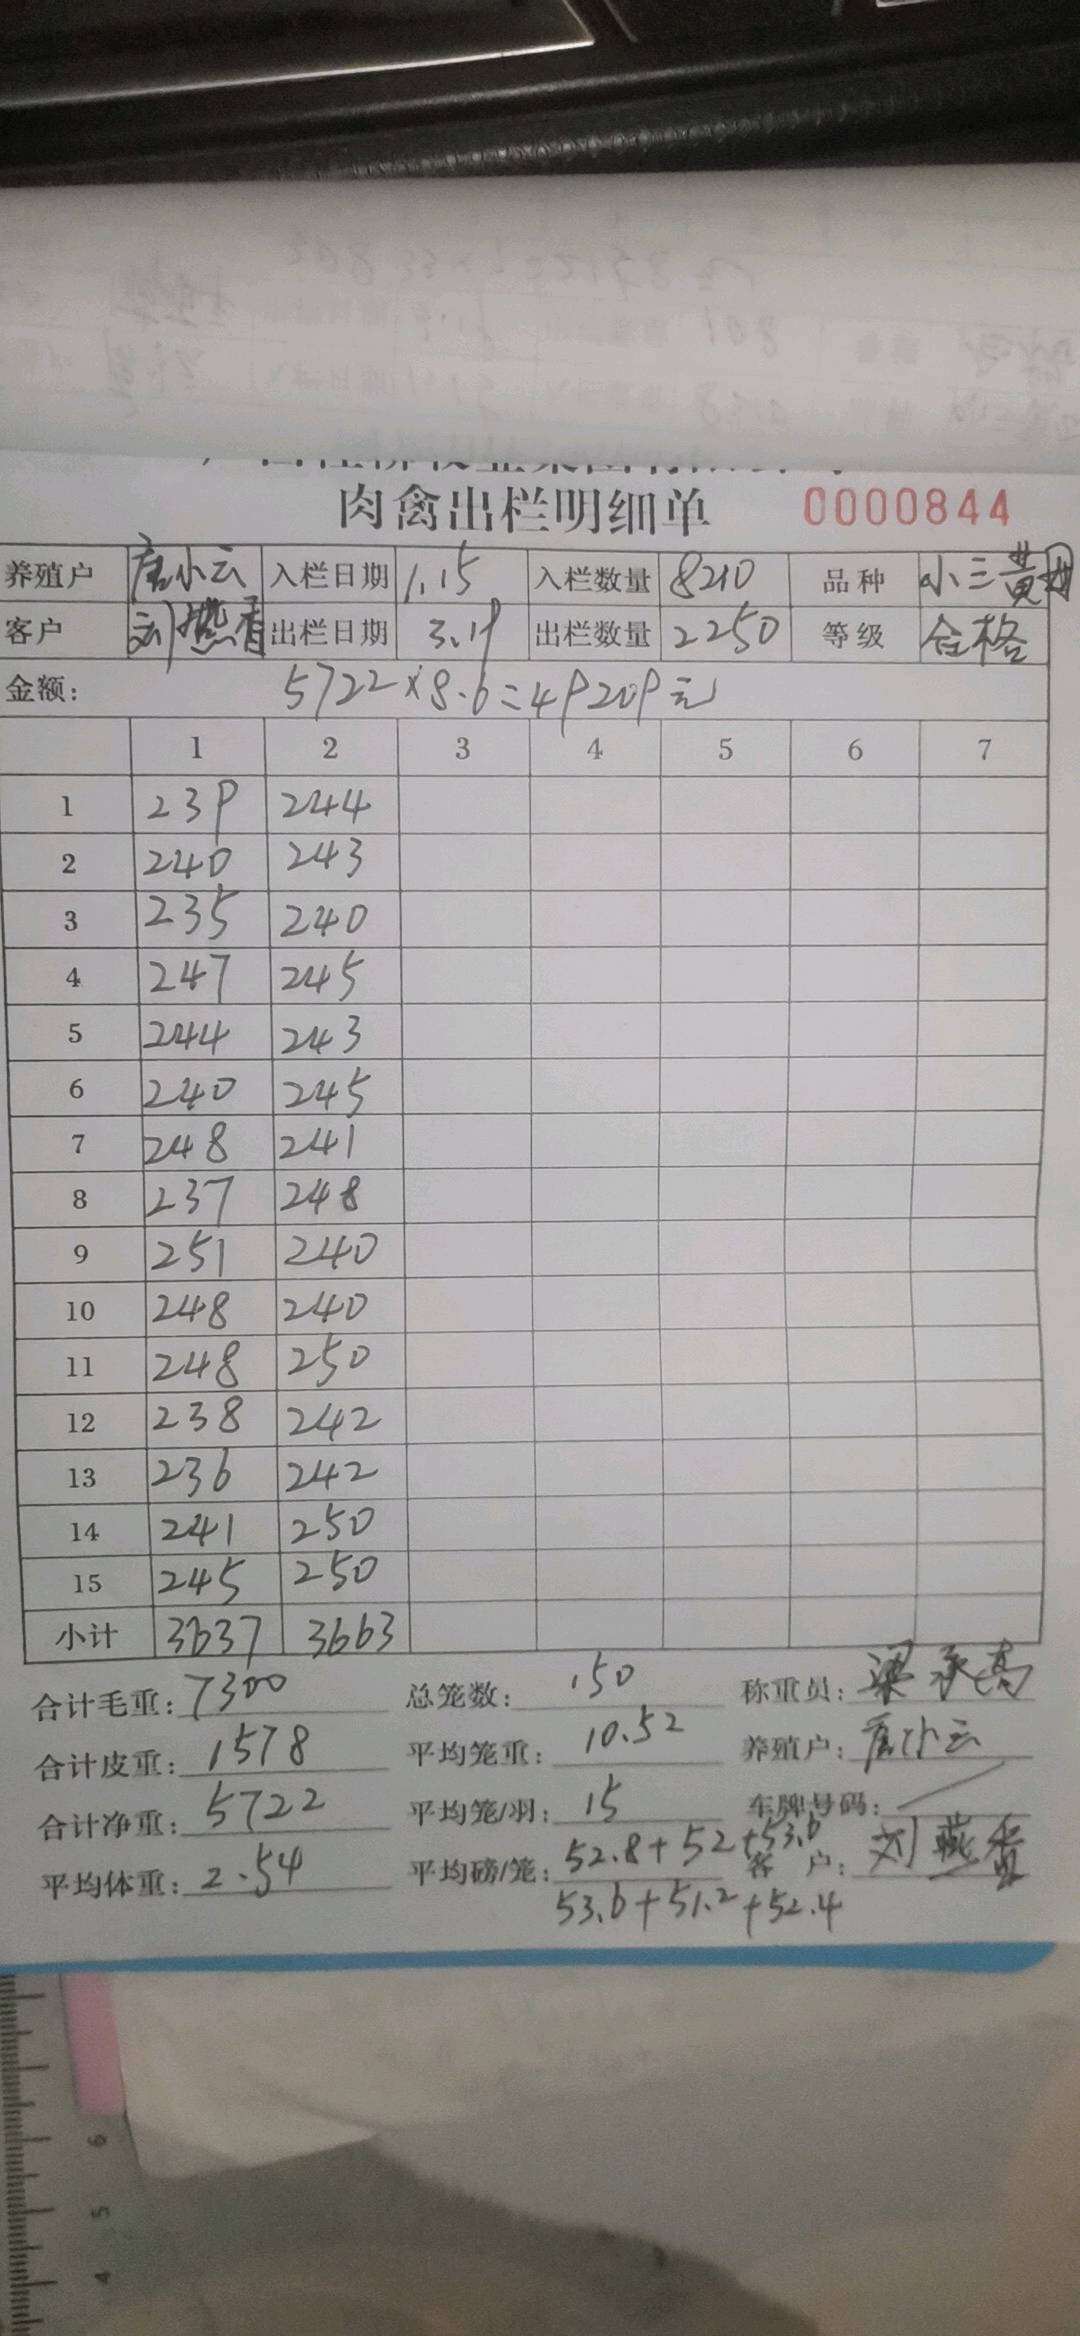 肉禽出栏明细单 0000844
养殖户 唐小云 入栏日期 1.15 入栏数量 8210 品种 小三黄
客户 刘燕香 出栏日期 3.19 出栏数量 2250 等级 合格
金额: 5722×8.6=49209元
1 2 3 4 5 6 7
1 239 244
2 240 243
3 235 240
4 247 245
5 244 243
6 240 245
7 248 241
8 237 248
9 251 240
10 248 240
11 248 250
12 238 242
13 236 242
14 241 250
15 245 250
小计 3637 3663
合计毛重: 7300 总笼数: 150 称重员: 梁承高
合计皮重: 1578 平均笼重: 10.52 养殖户: 唐小云
合计净重: 5722 平均笼/羽: 15 车牌号码:
平均体重: 2.54 平均磅/笼: 52.8+52+53.6 客户: 刘燕香
53.6+51.2+52.4
6
5
4